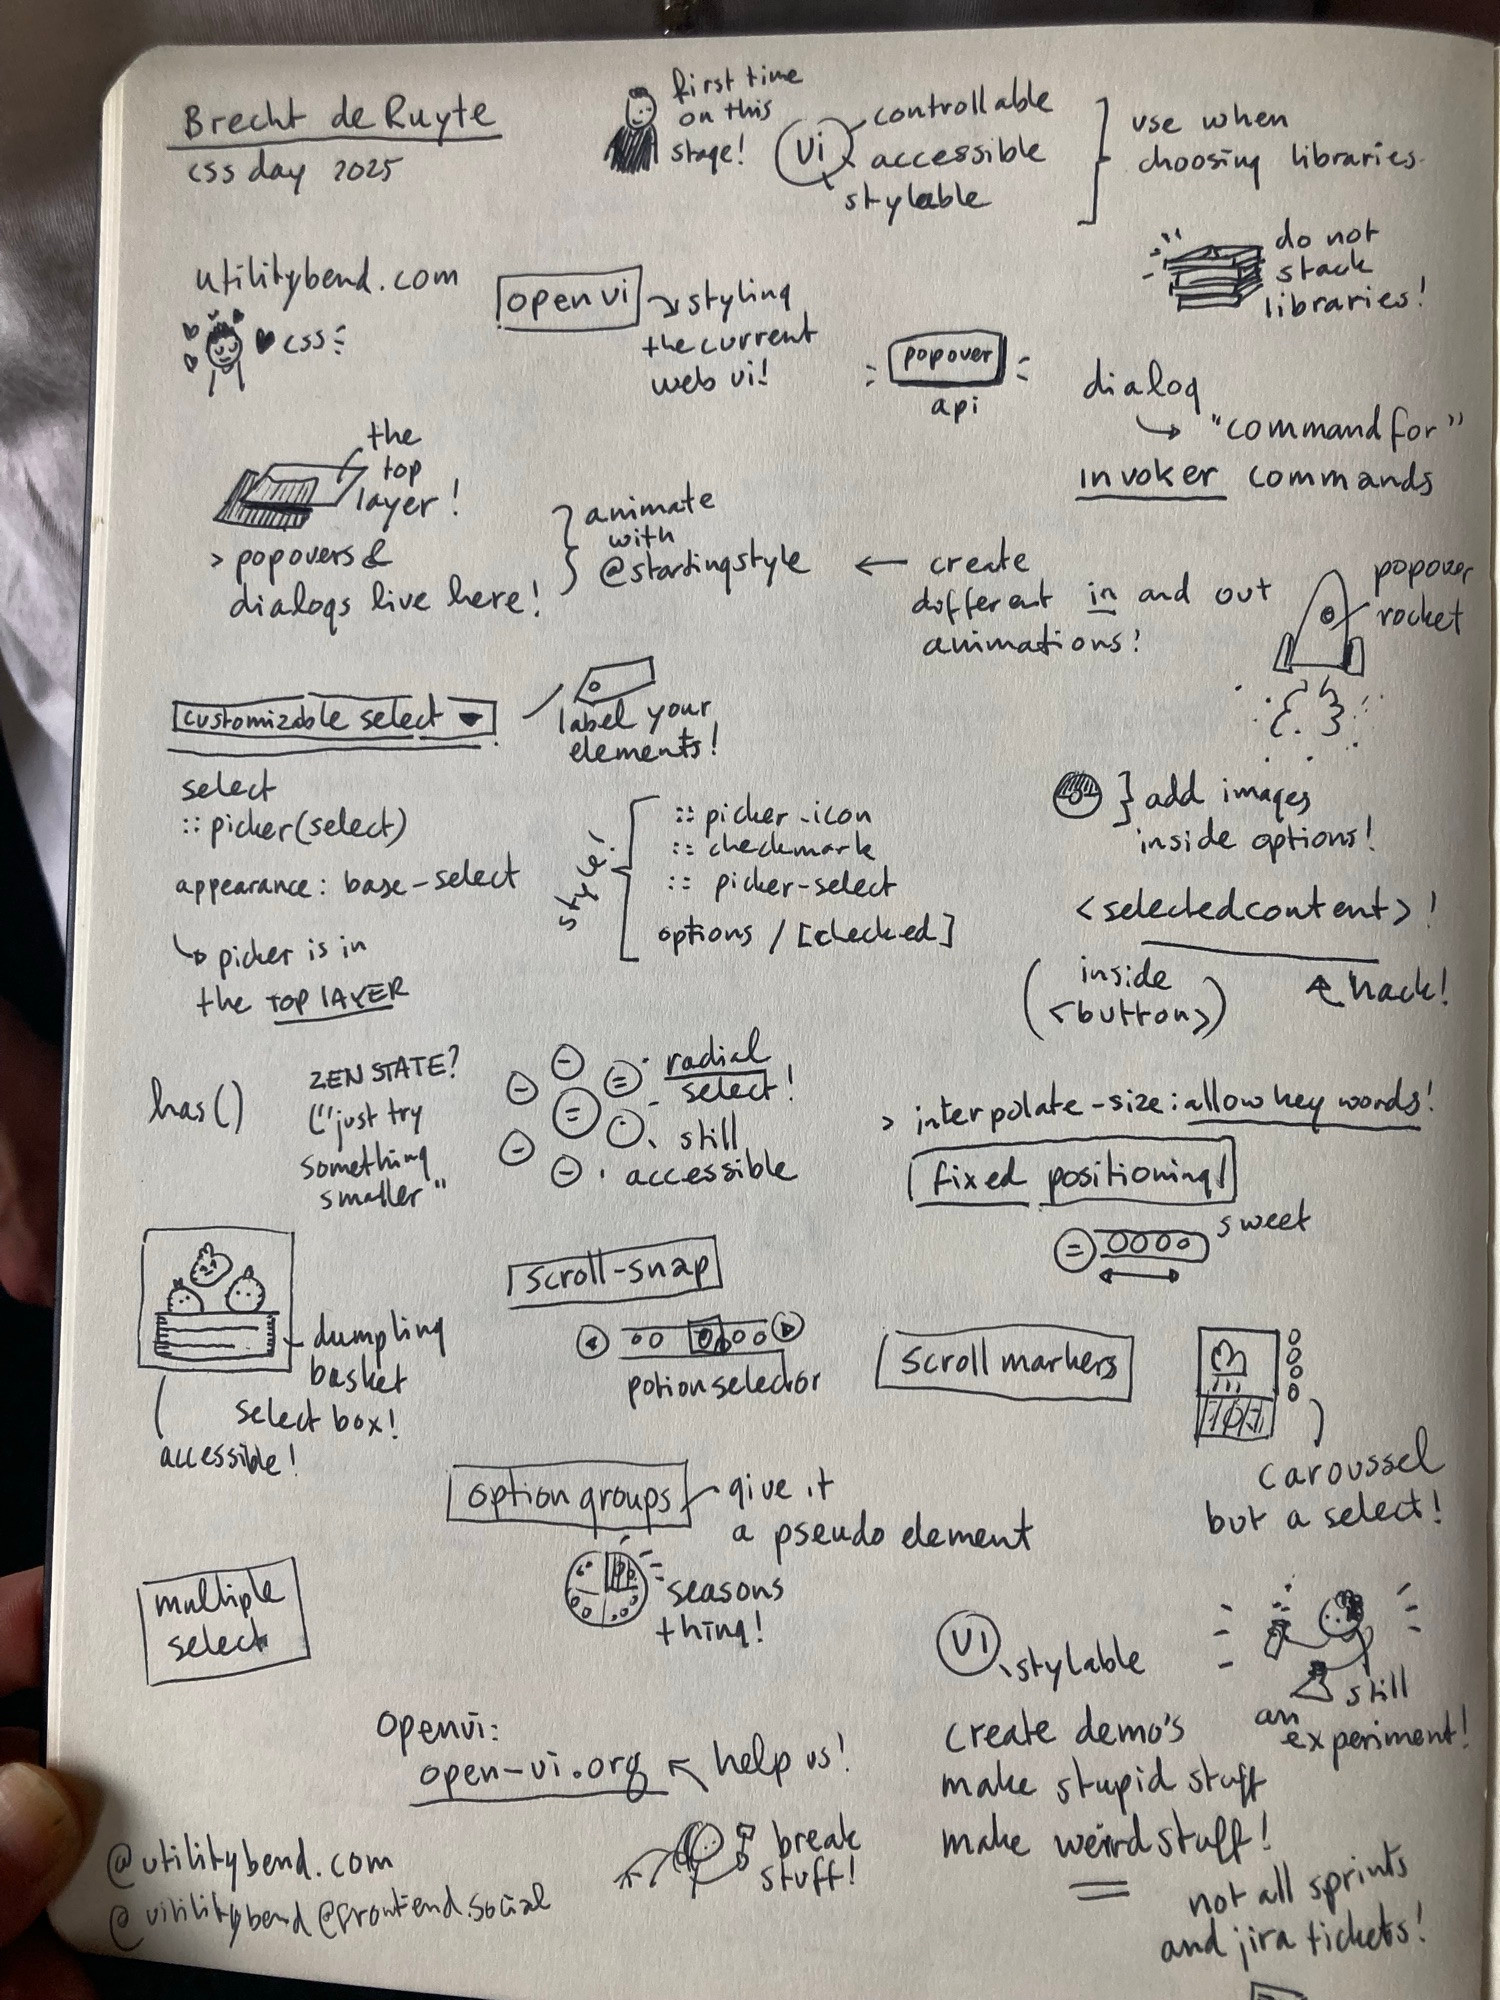 Brecht de Ruyte
css day 2025
first time
on this
stage!
UI
controllable
accessible
stylable
use when
choosing libraries
do not
stack
libraries!
utilitybend.com
css
open ui
styling
the current
web ui!
popover
api
dialog
"commandfor"
invoker commands
the
top
layer!
> popovers &
dialogs live here!
animate
with
@startingstyle
← create
different in and out
animations!
popover
rocket
customizable select
label your
elements!
select
:: picker(select)
appearance: base-select
picker is in
the TOP LAYER
style!
:: picker-icon
:: checkmark
:: picker-select
options / [checked]
} add images
inside options!
<selectedcontent>!
(inside
<button>)
hack!
has()
ZEN STATE?
("just try
something
smaller"
radial
select!
still
accessible
> interpolate-size: allow key words!
fixed positioning!
sweet
dumpling
basket
select box!
accessible!
scroll-snap
potion selector
scroll markers
caroussel
but a select!
option groups
give it
a pseudo element
seasons
thing!
multiple
select
UI
stylable
still
an
experiment!
openui:
open-ui.org
help us!
create demo's
make stupid stuff
make weird stuff!
break
stuff!
not all sprints
and jira tickets!
@utilitybend.com
@utilitybend@frontend.social